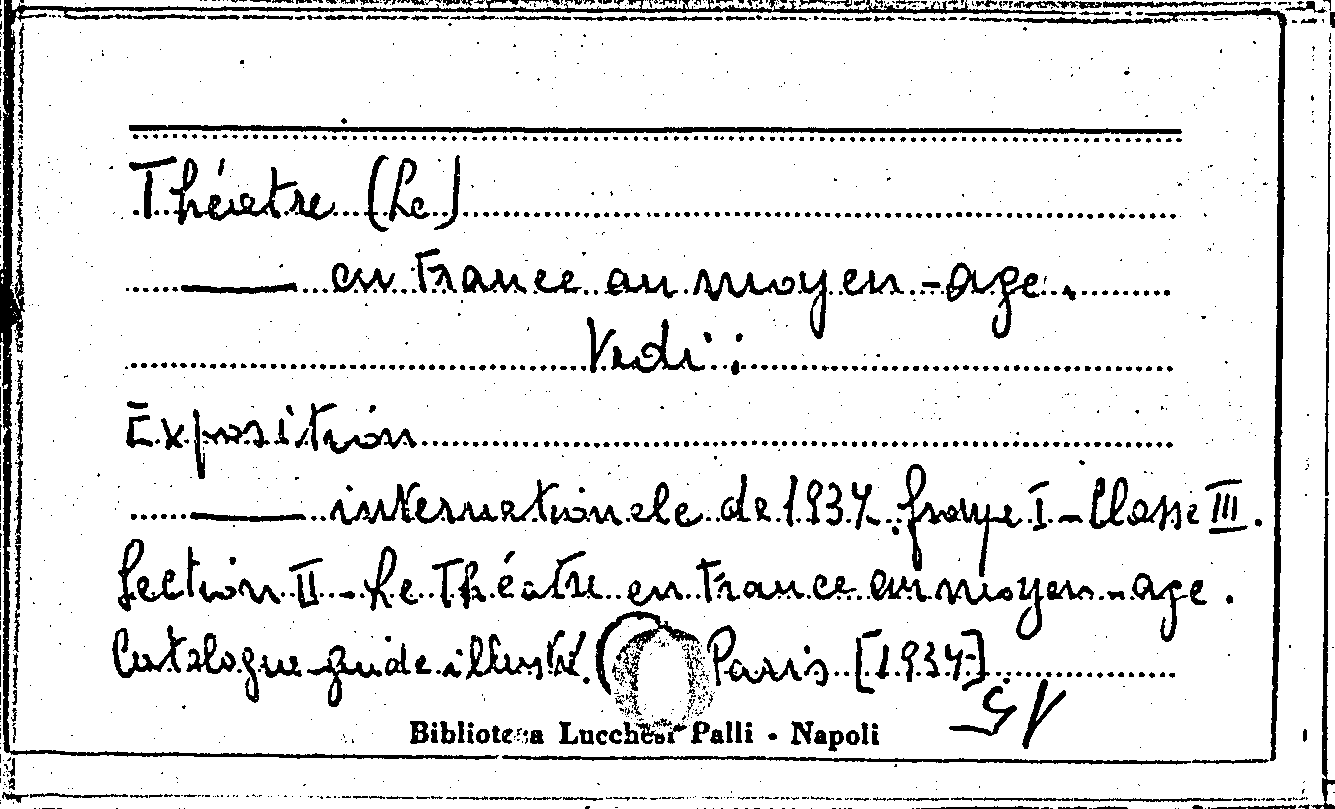 Théatre (Le)
——— en France au moyen-age.
Vedi:
Exposition
——— internationale de 1937. Groupe I - Classe III.
Section II - Le Théatre en France au moyen-age.
Catalogue-guide illustré. ( Paris [1937]
Biblioteca Lucchesi Palli - Napoli